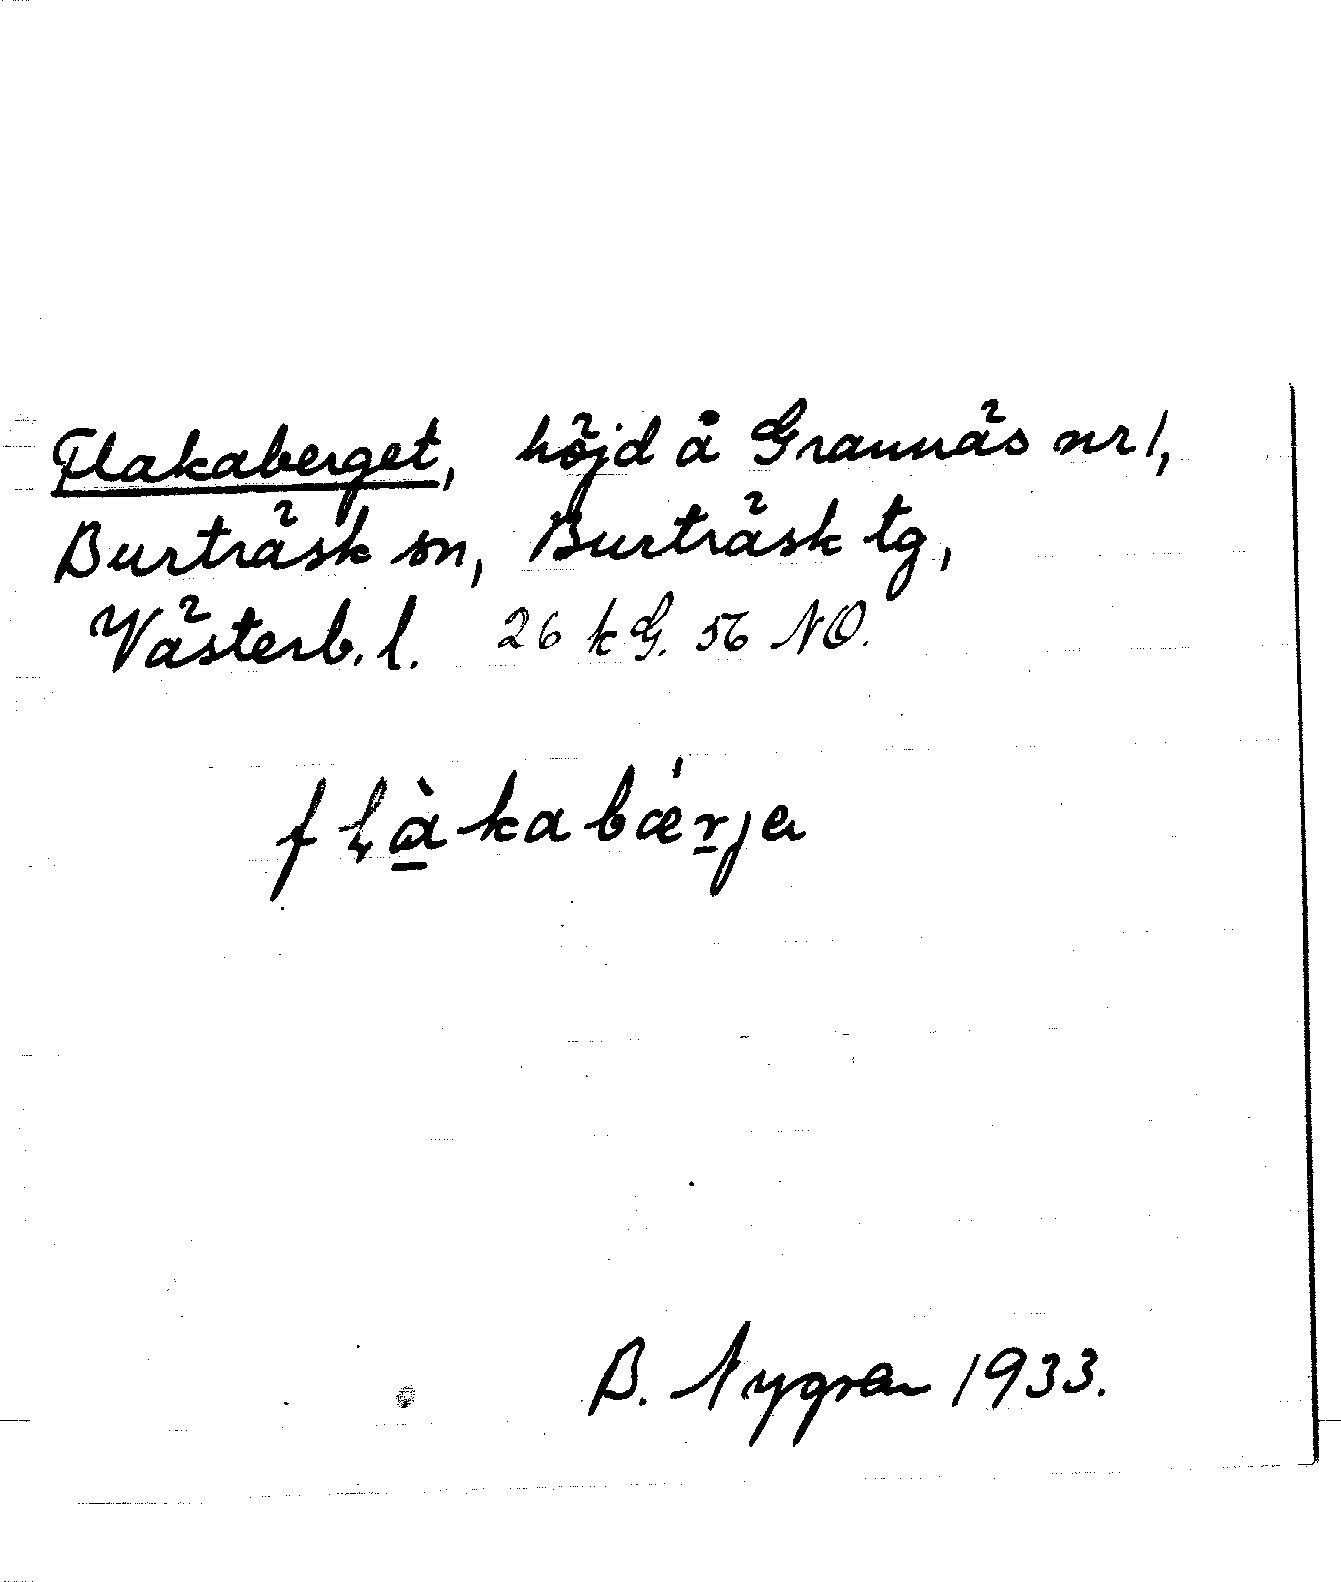 Flakaberget, höjd å Grannäs nr 1,
Burträsk sn, Burträsk tg,
Västerb. l. 26 kG. 56 NO.
fḷà̱kabǽṟja
B. Nygren 1933.